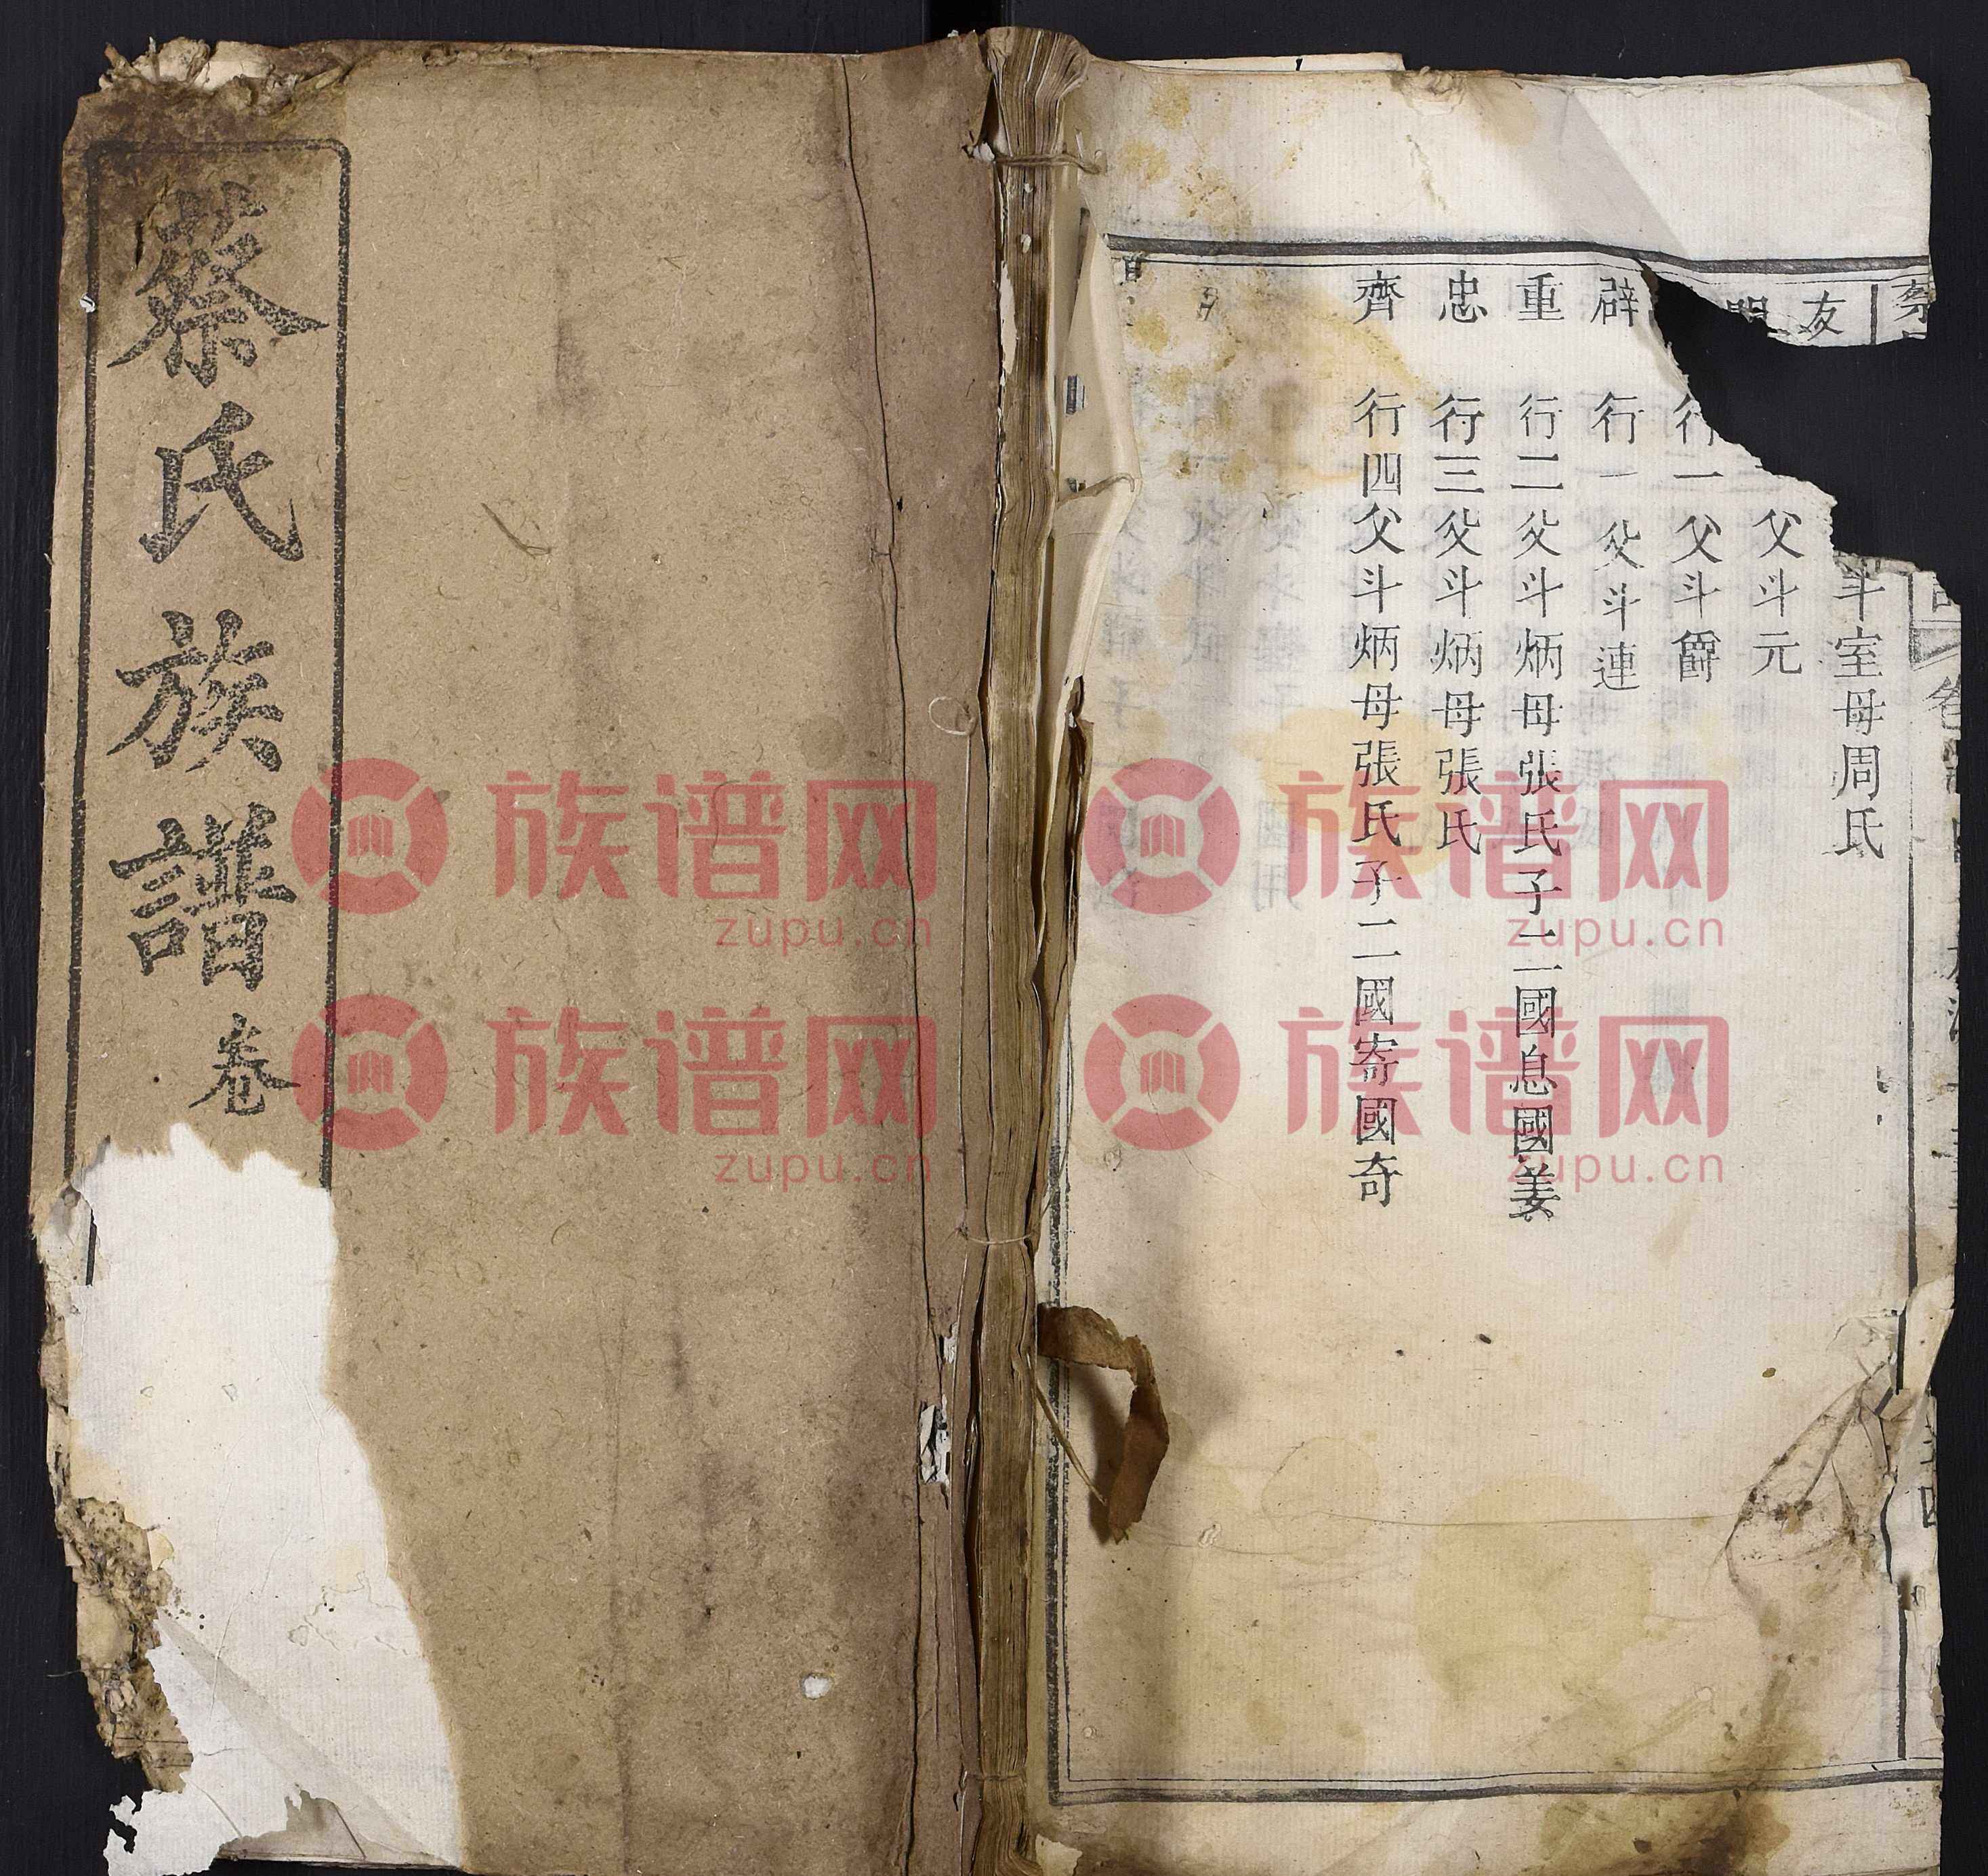 友
斗室母周氏
父斗元
行一父斗爵
辟 行一父斗連
重 行二父斗炳母張氏子二國息國姜
忠 行三父斗炳母張氏
齊 行四父斗炳母張氏子二國寄國奇
蔡氏族譜卷
族谱网
zupu.cn
族谱网
zupu.cn
族谱网
zupu.cn
族谱网
zupu.cn